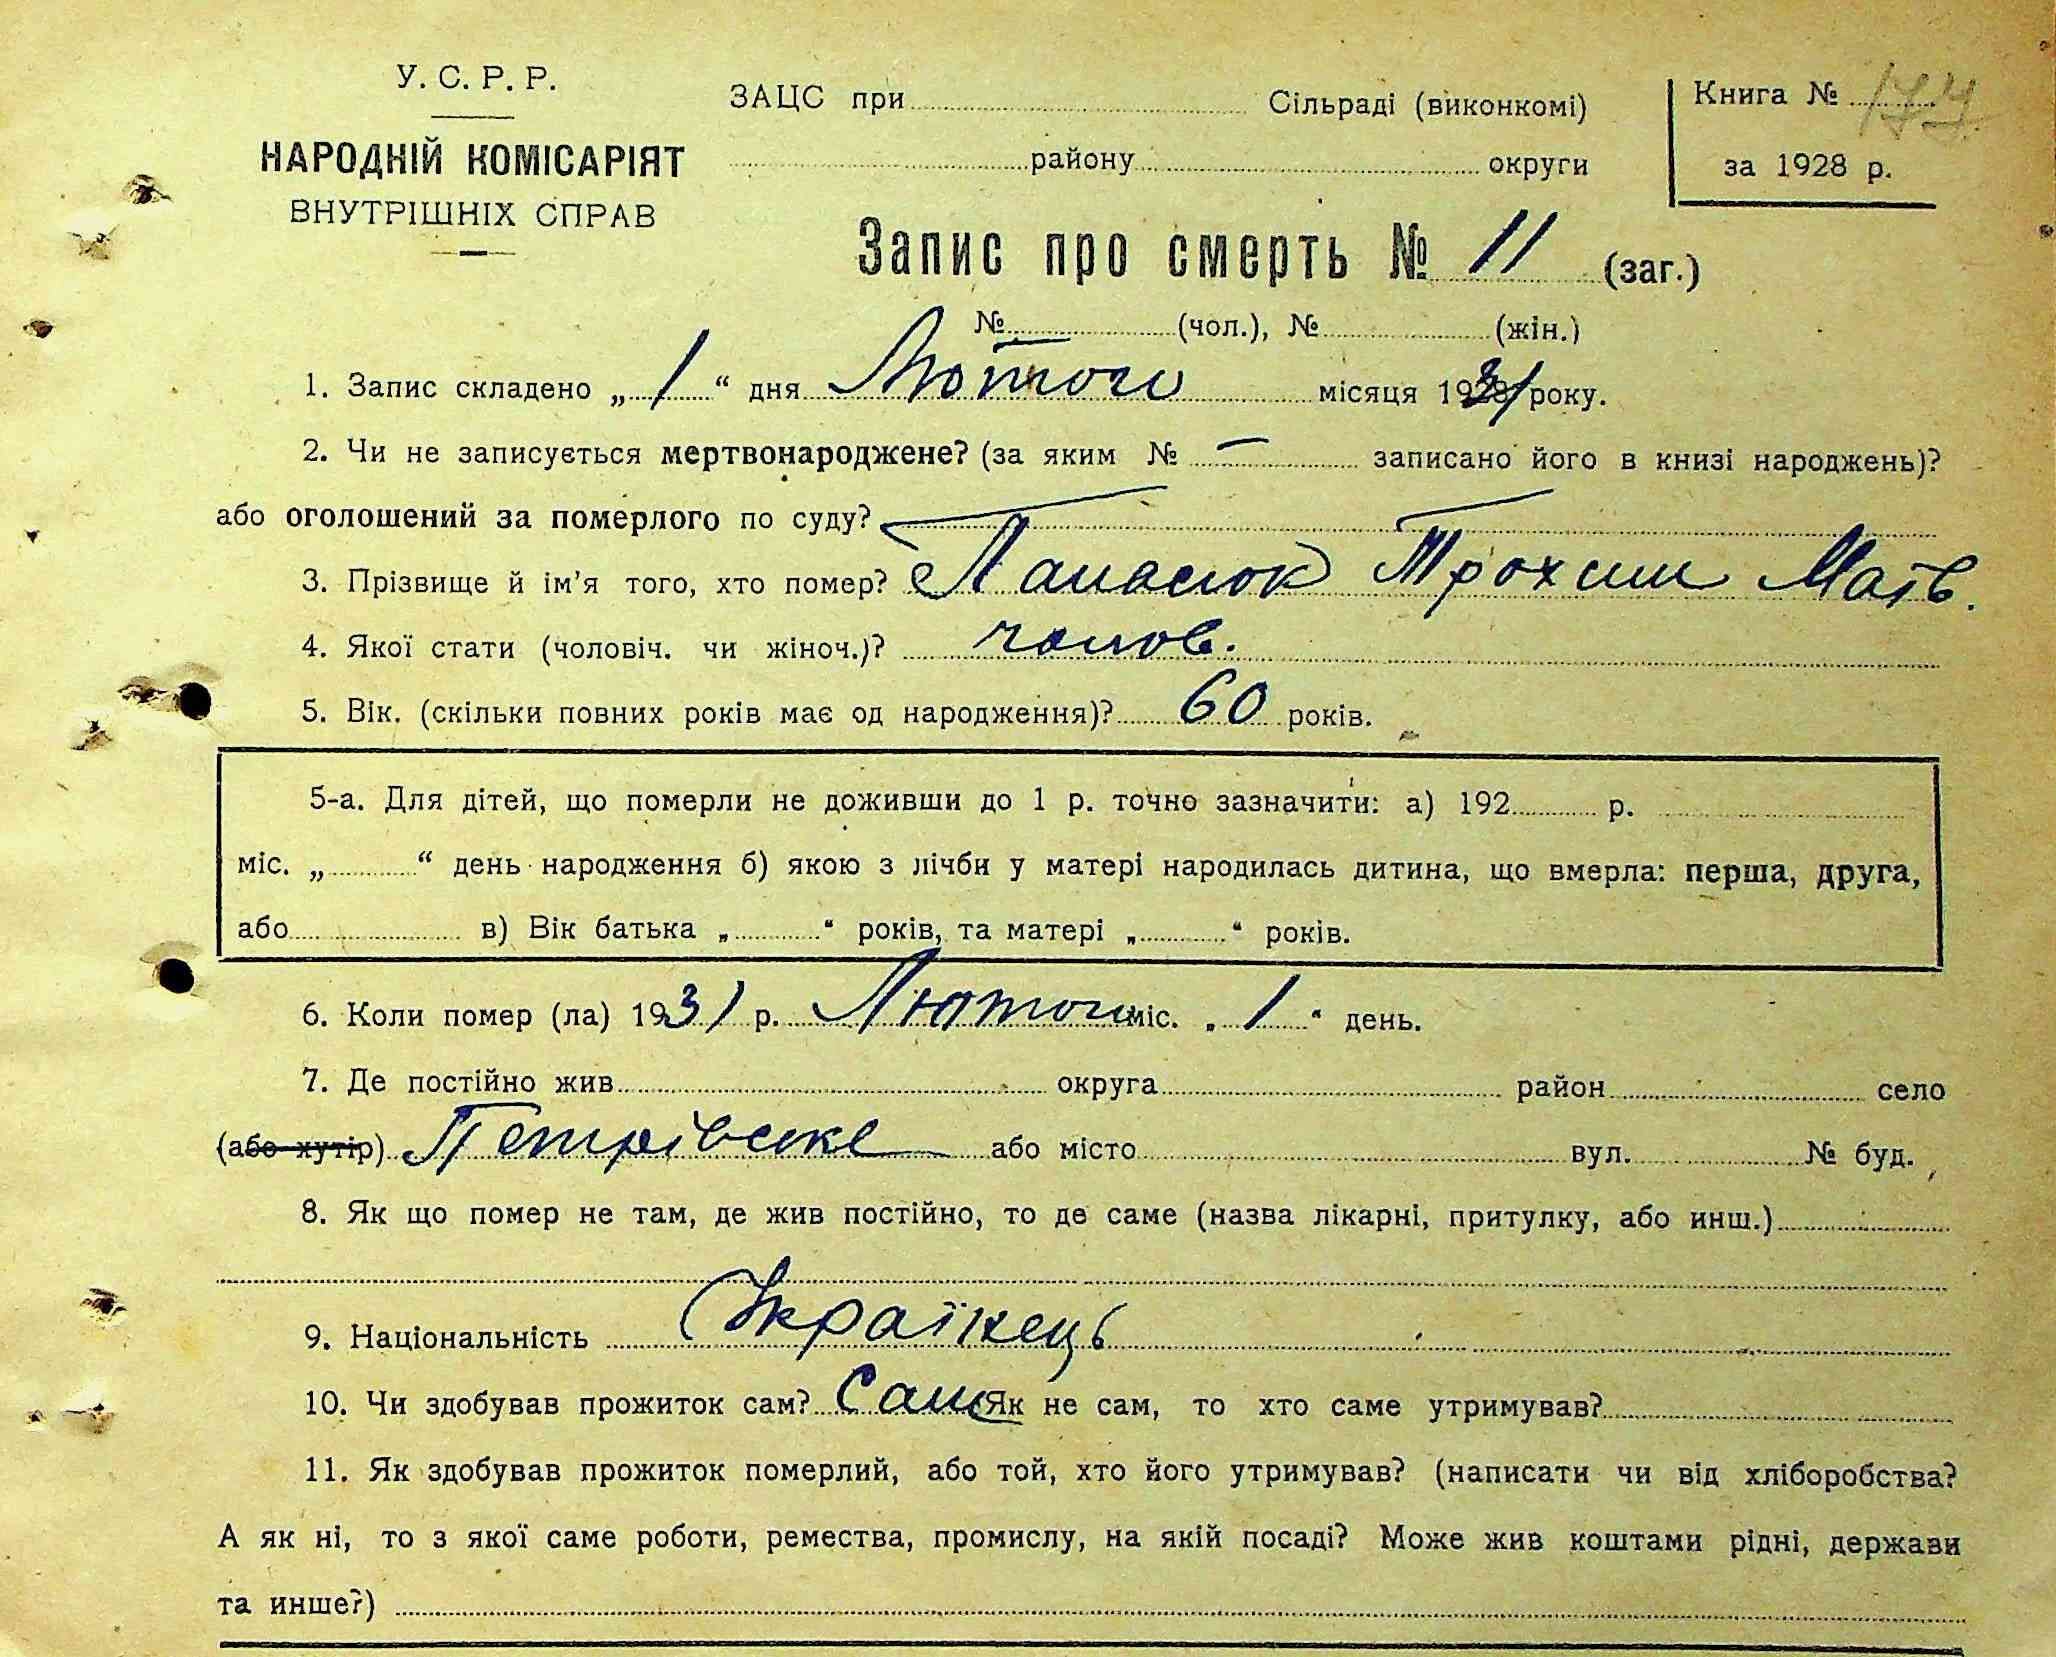 У. С. Р. Р.
НАРОДНІЙ КОМІСАРІЯТ
ВНУТРІШНІХ СПРАВ
ЗАЦС при Сільраді (виконкомі)
району округи
Книга №
за 1928 р.
Запис про смерть № 11 (заг.)
№ (чол.), № (жін.)
1. Запис складено „ 1 “ дня Лютого місяця 1931 року.
2. Чи не записується мертвонароджене? (за яким № — записано його в книзі народжень)?
або оголошений за померлого по суду?
3. Прізвище й ім'я того, хто помер? Панасюк Трохим Матв.
4. Якої стати (чоловіч. чи жіноч.)? чолов.
5. Вік. (скільки повних років має од народження)? 60 років.
5-а. Для дітей, що померли не доживши до 1 р. точно зазначити: а) 192 р.
міс. „ “ день народження б) якою з лічби у матері народилась дитина, що вмерла: перша, друга,
або в) Вік батька „ “ років, та матері „ “ років.
6. Коли помер (ла) 1931 р. Лютого міс. „ 1 “ день.
7. Де постійно жив округа район село
(або хутір) Петрівське або місто вул. № буд.
8. Як що помер не там, де жив постійно, то де саме (назва лікарні, притулку, або инш.)
9. Національність Українець
10. Чи здобував прожиток сам? Сам Як не сам, то хто саме утримував?
11. Як здобував прожиток померлий, або той, хто його утримував? (написати чи від хліборобства?
А як ні, то з якої саме роботи, ремества, промислу, на якій посаді? Може жив коштами рідні, держави
та инше?)